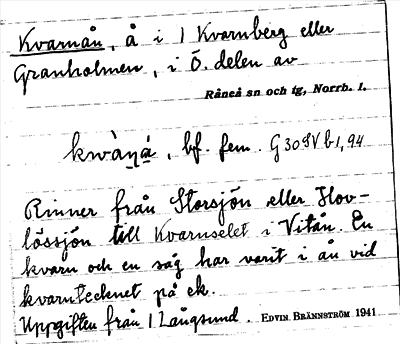 Kvarnån, å i 1 Kvarnberg eller
Granholmen, i Ö. delen av
Råneå sn och tg, Norrb. l.
kwàṉá̱, bf. fem. G 30 SV b 1, 94
Rinner från Storsjön eller Hov-
lössjön till Kvarnselet i Vitån. En
kvarn och en såg har varit i ån vid
kvarntecknet på ek.
Uppgiften från 1 Långsund. EDVIN BRÄNNSTRÖM 1941